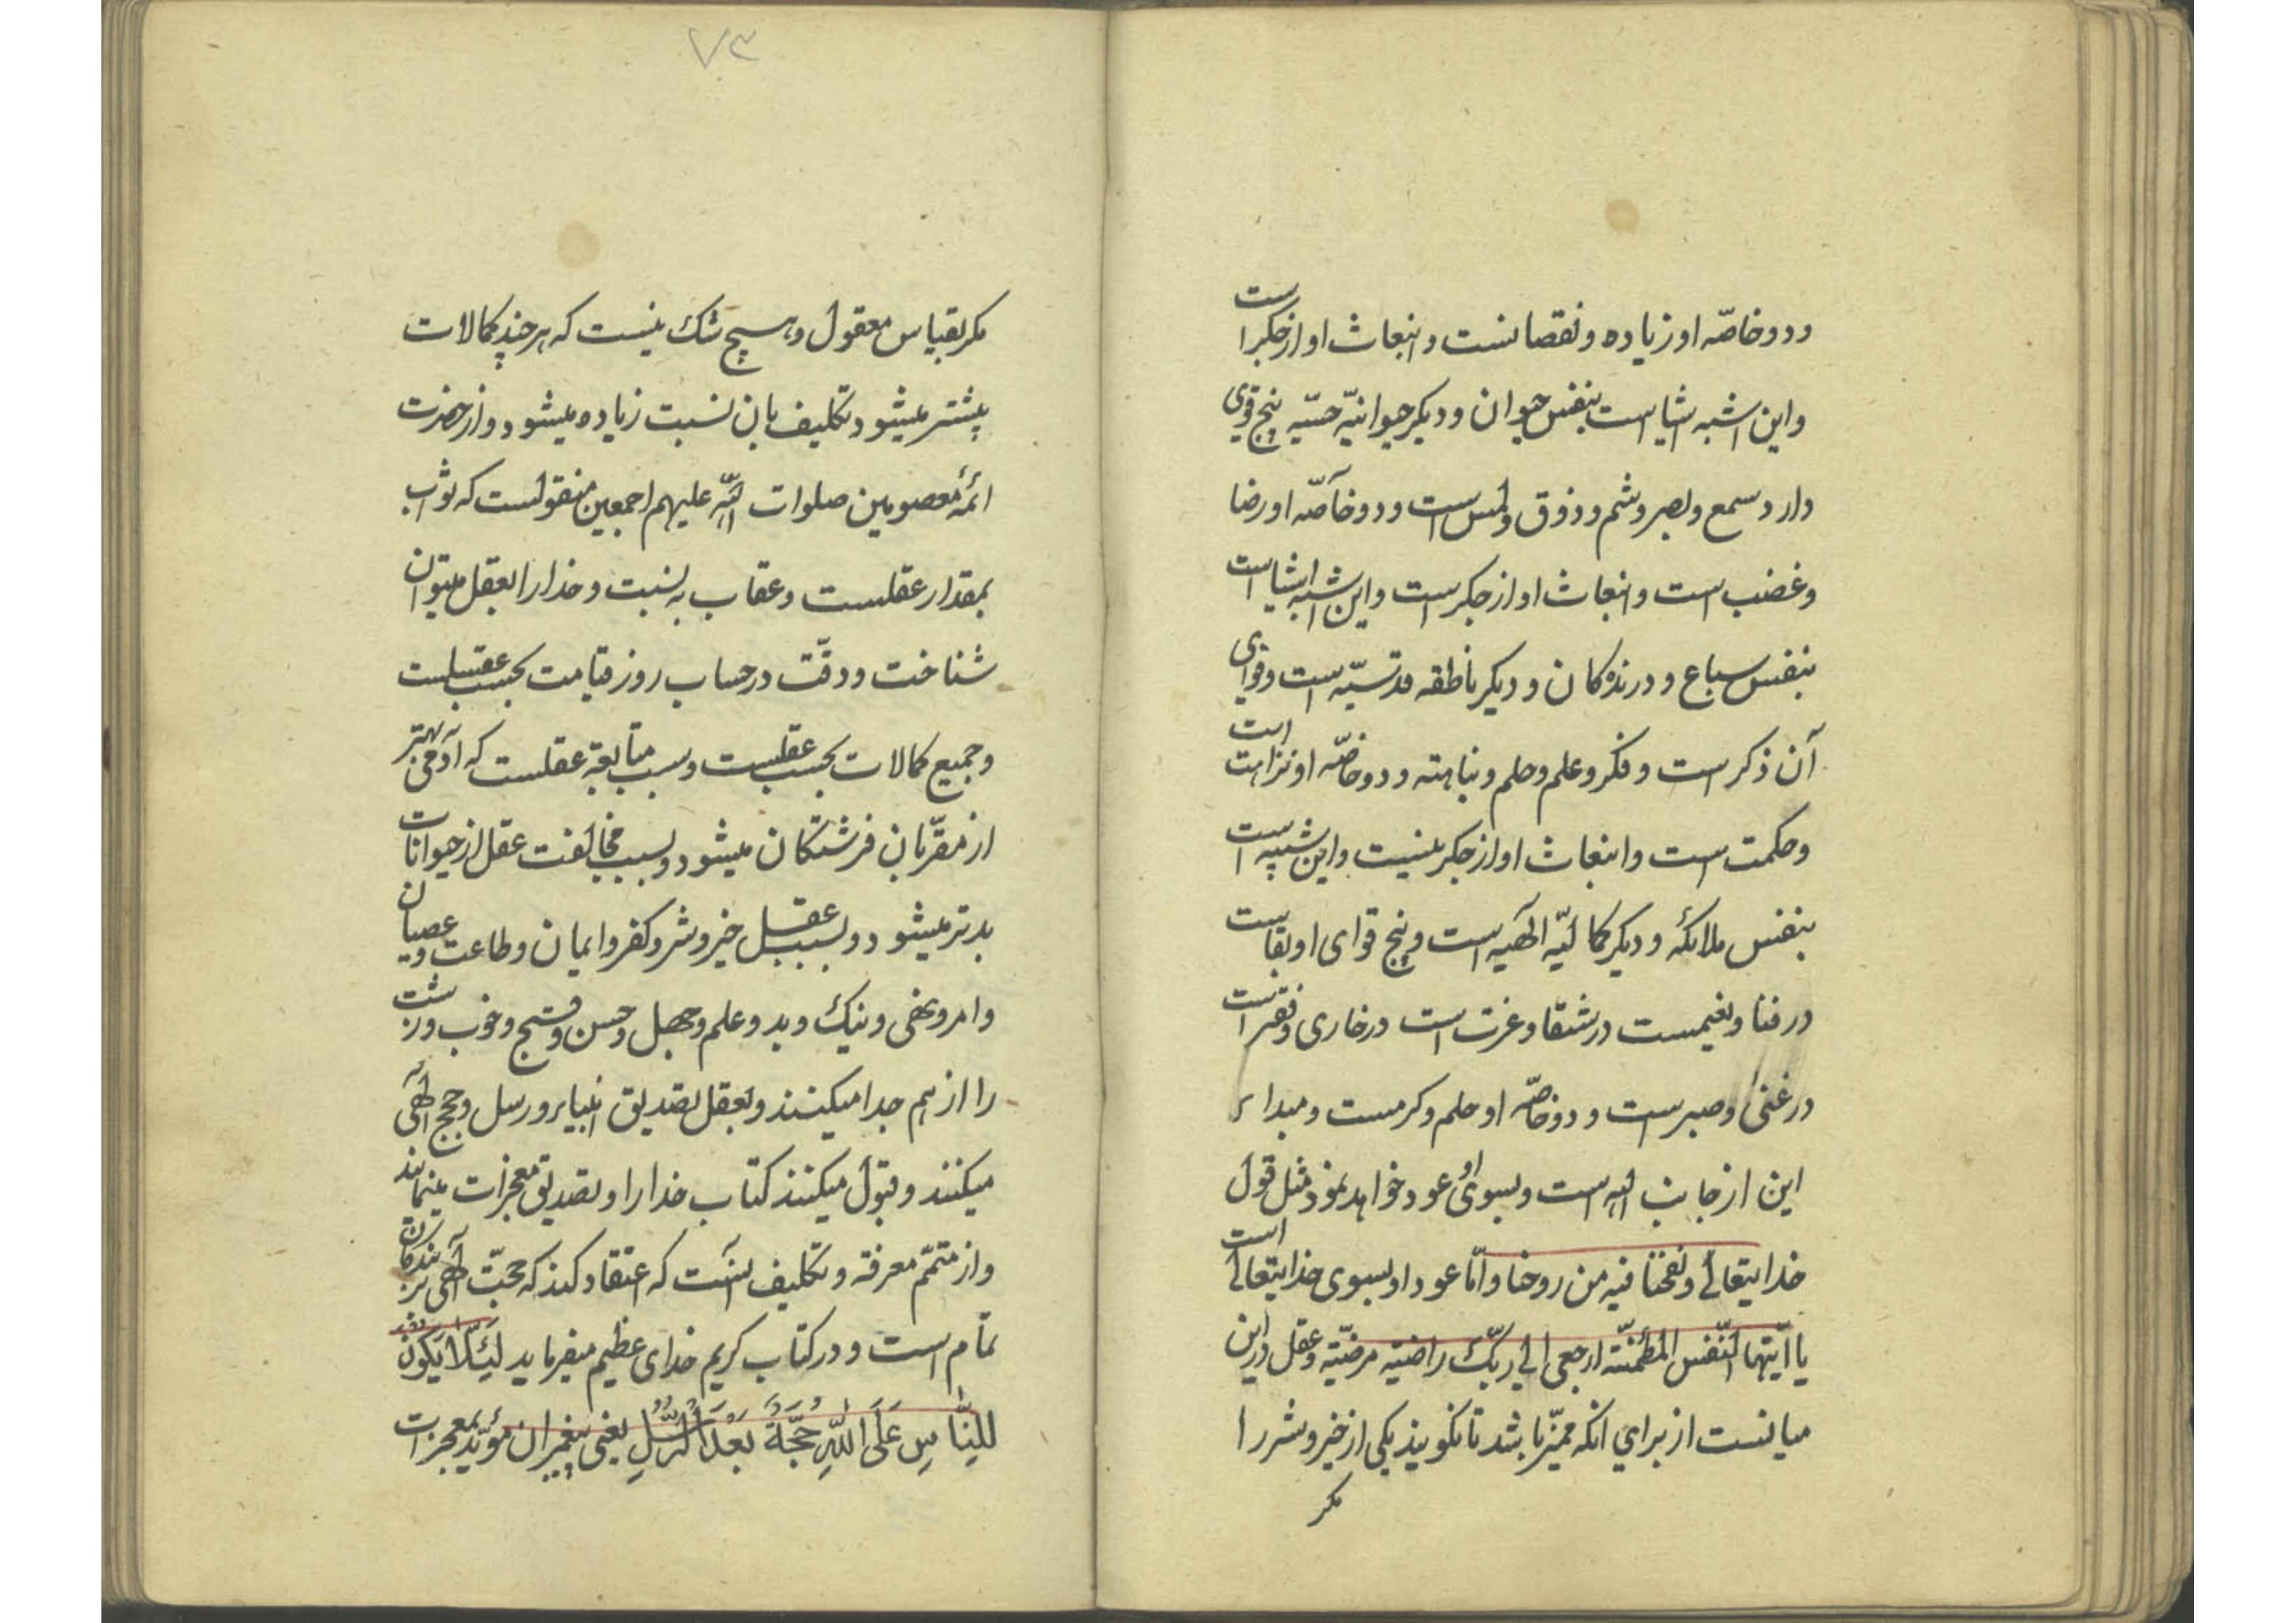 ودو خاصّه او زیاده ونقصانست وانبعاث او از جکر است
واین اشبه اشیا است بنفس حیوان ودیکر حیوانیّه حسّیه پنج قوی
دارد سمع وبصر وشم وذوق ولمس است ودو خاصّه او رضا
وغضب است وانبعاث او از جکر است واین اشبه اشیا است
بنفس سباع ودرندکان ودیکر ناطقه قدسیّه است وقوای
آن ذکر است وفکر وعلم وحلم ونباهته ودو خاصّه او نزاهت است
وحکمت است وانبعاث او از جکر نیست واین شبیه است
بنفس ملائکه ودیکر کمالیّه الٓهیه است وپنج قوای او بقاست
در فنا ونعیمست در شقا وعزت است در خاری وفقر است
در غنیٰ وصبر است ودو خاصّه او حلم وکرمست ومبداء
این از جانب اللّه است وبسوی او عود خواهد نمود مثل قول
خدایتعالی ونفخنا فیه من روحنا وامّا عود او بسوی خدایتعالی است
یا ایّتها النّفس المطمئنّه ارجعی الی ربّک راضیّه مرضیّه وعقل در این
میانست از برای انکه ممیّز باشد تا نکوید یکی از خیر وشر را
مکر
۷۳
مکر بقیاس معقول وهیچ شک نیست که هر چند کمالات
پیشتر میشود تکلیف بان نسبت زیاده میشود واز حضرت
ائمّه معصومین صلوات اللّه علیهم اجمعین منقولست که ثواب
بمقدار عقلست وعقاب به نسبت وخدا را بعقل میتوان
شناخت ودقّت در حساب روز قیامت بحسب عقلست
وجمیع کمالات بحسب عقلست وسبب متابعة عقلست که آدمی بهتر
از مقرّبان فرشتکان میشود وبسبب مخالفت عقل از حیوانات
بدتر میشود وبسبب عقل خیر وشر وکفر وایمان وطاعت وعصیان
وامر ونهی ونیک وبد وعلم وجهل وحسن وقبیح وخوب وزشت
را از هم جدا میکنند وبعقل تصدیق انبیاء ورسل وحجج الٓهی
میکنند وقبول میکنند کتاب خدا را وتصدیق معجزات مینمایند
واز متمّم معرفة وتکلیف آنست که اعتقاد کند که حجّت الٓهی بر بندکان
تمام است ودر کتاب کریم خدای عظیم میفرماید لِئَلّا یَکُونَ
لِلنّاسِ عَلَی اللّهِ حُجَّةٌ بَعْدَ الرُّسُلِ یعنی پیغمبران مؤیّد بمعجزات